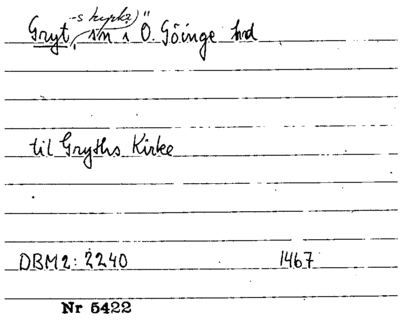 -s kyrka)
Gryt, sn i Ö. Göinge hrd
til Gryths Kirke
DBM2: 2240 1467
Nr 5422